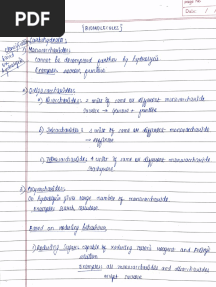 PDF
Page No.
Date
[BIOMOLECULES]
Carbohydrates
1) Monosaccharides
cannot be decomposed further by hydrolysis
Examples
2) Oligosaccharides
a) Disaccharides 2 units of same or different monosaccharide
Sucrose → glucose + fructose
b) Trisaccharides 3 units of same or different monosaccharide
c) Tetrasaccharides 4 units of same or different monosaccharide
3) Polysaccharides
On hydrolysis gives large number of monosaccharide
Examples starch, cellulose
Based on reducing behaviour,
1) Reducing Sugars capable of reducing Tollen's reagent and Fehling's
solution
Examples all monosaccharides and disaccharides
except sucrose